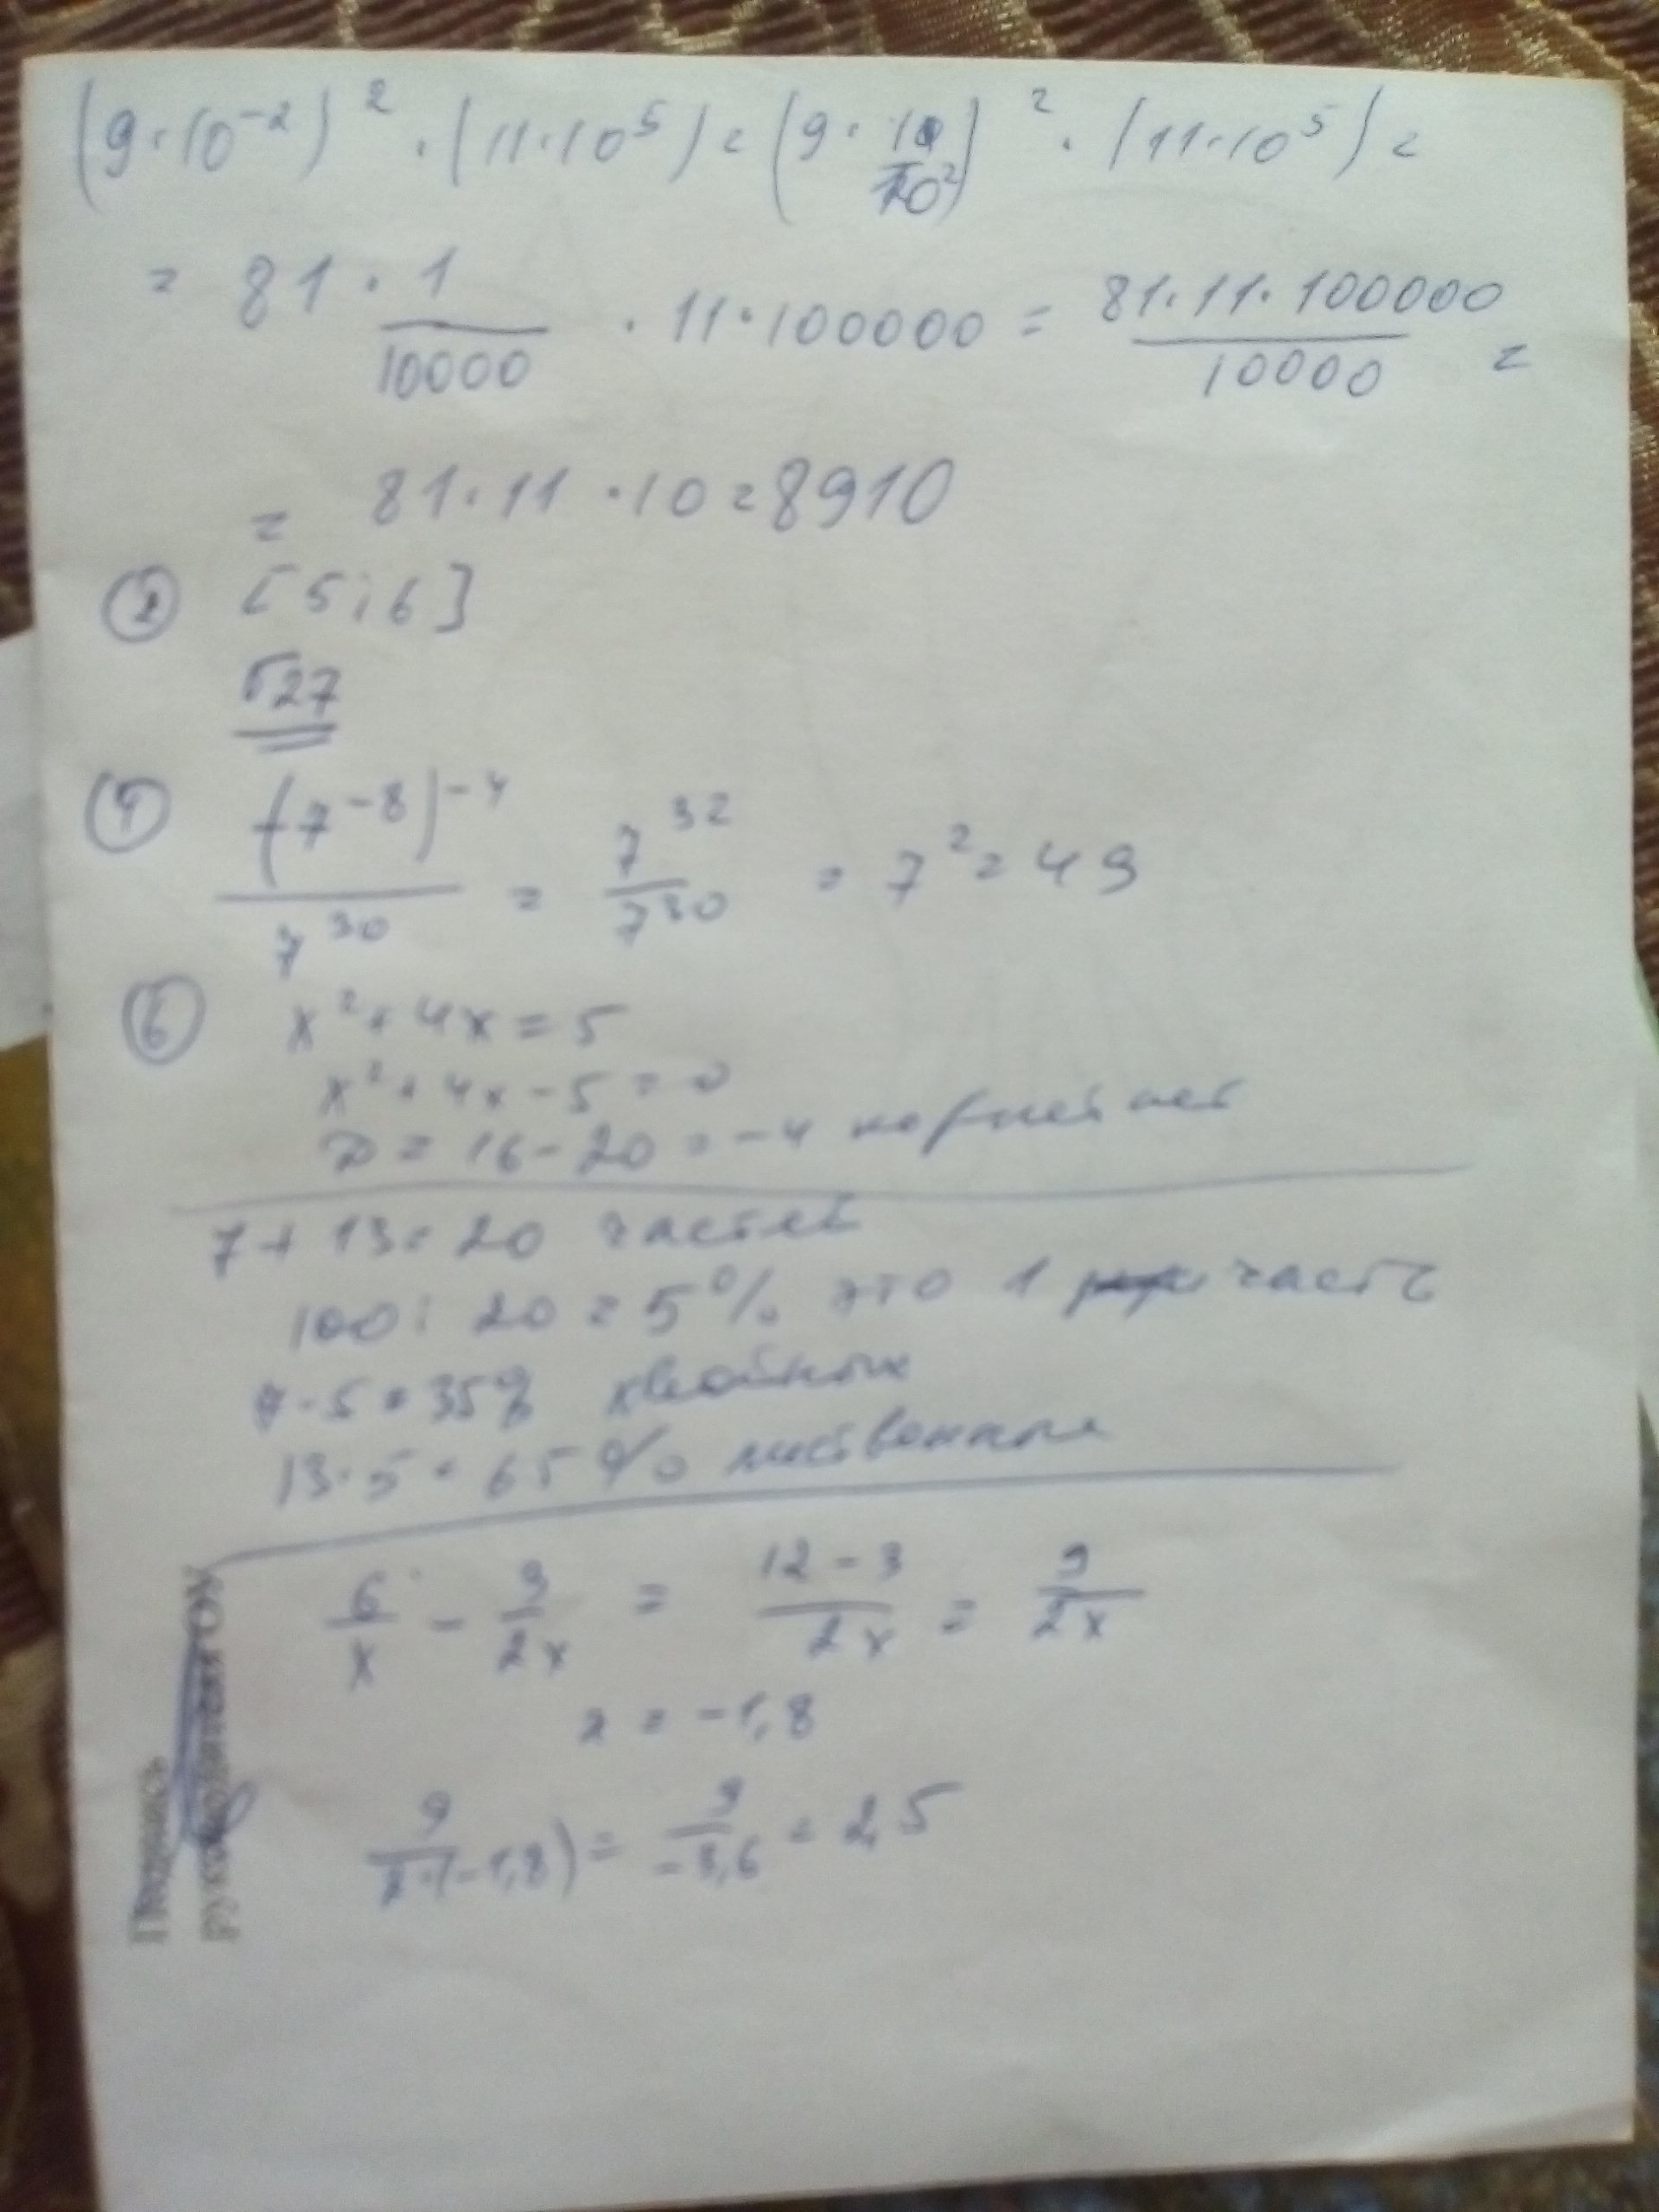 (9·10⁻²)² · (11·10⁵) = (9 · 1/10²)² · (11·10⁵) =
= 81 · 1/10000 · 11·100000 = 81·11·100000/10000 =
= 81·11·10=8910
② [5;6]
√27
④ (7⁻⁸)⁻⁴/7³⁰ = 7³²/7³⁰ = 7² = 49
⑥ x²+4x=5
x²+4x-5=0
D = 16-20 = -4 корней нет
7+13=20 частей
100:20=5% это 1 часть
7·5=35% хвойных
13·5=65% лиственных
6/x - 3/2x = 12-3/2x = 9/2x
x = -1,8
9/2·(-1,8) = 9/-3,6 = 2,5
Подпись
руководителя ОУ